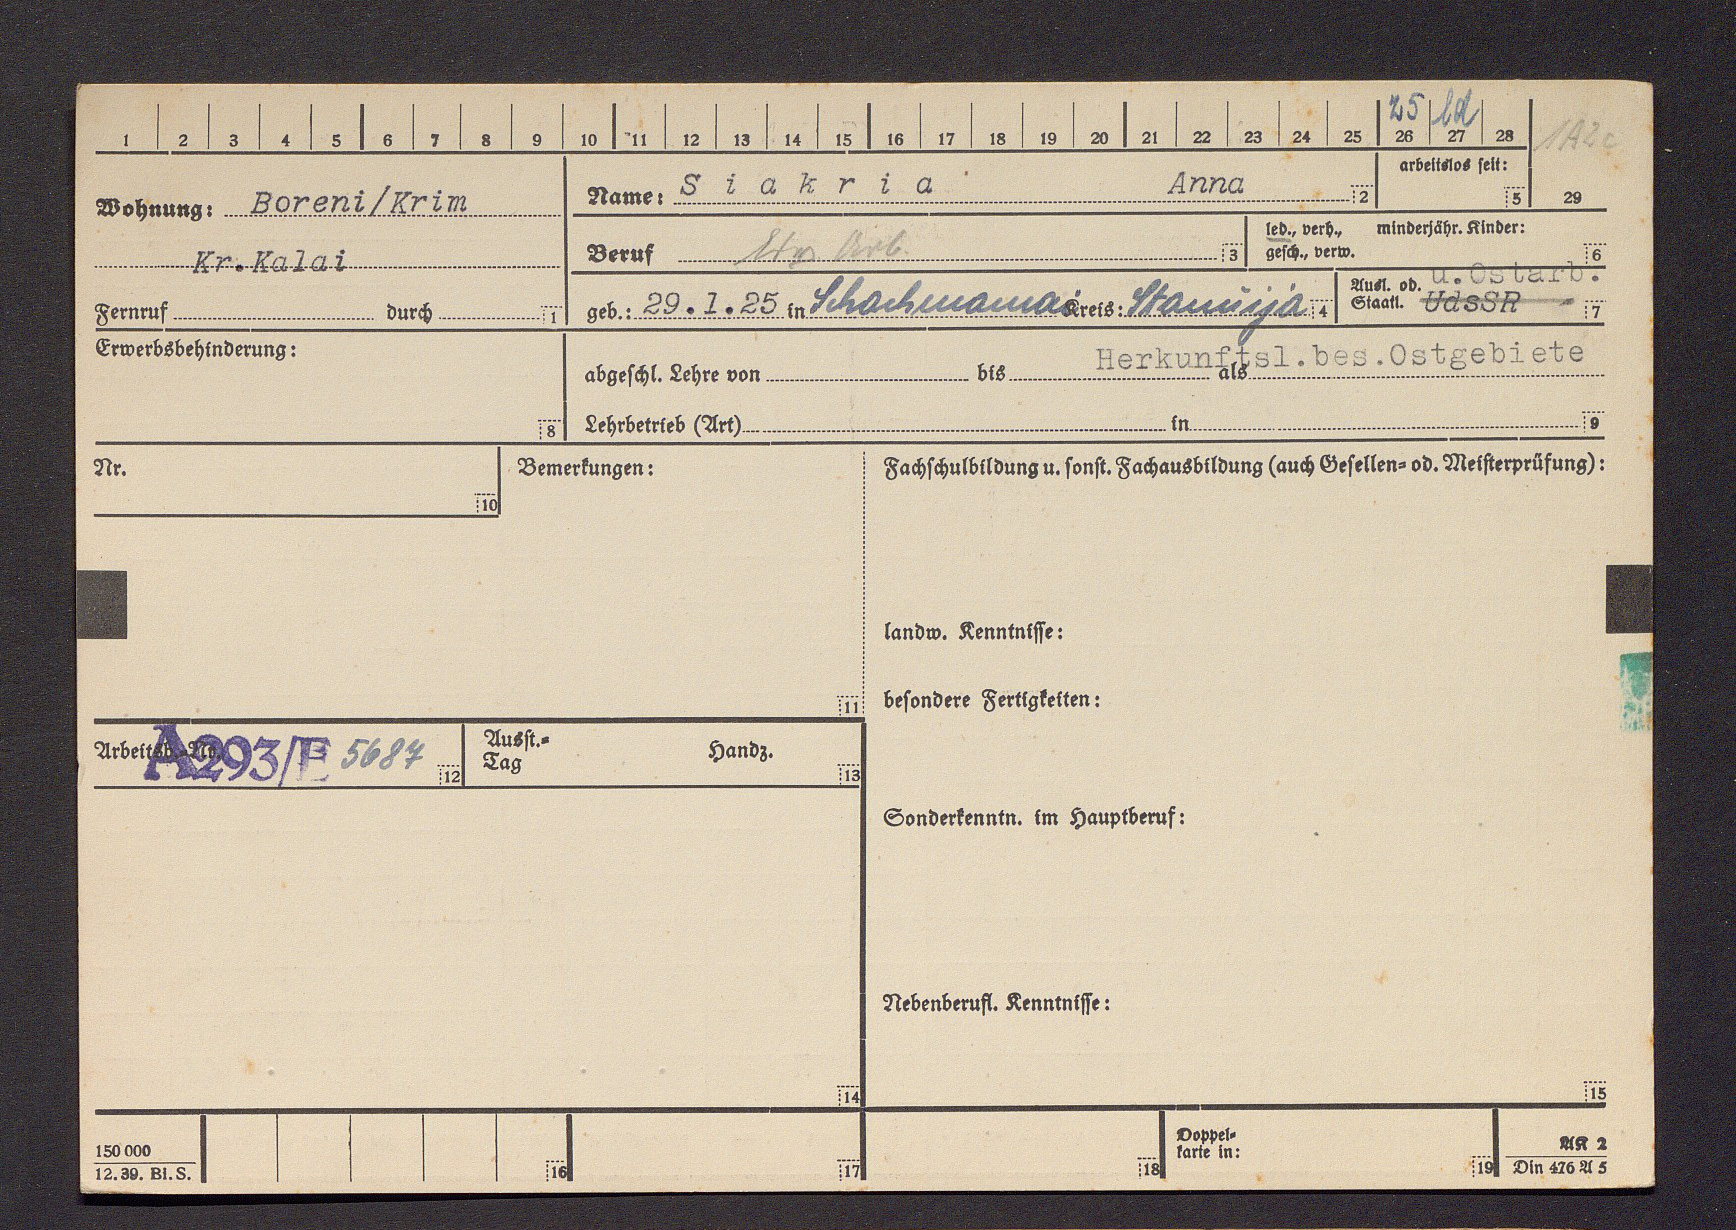 25 ld
1 2 3 4 5 6 7 8 9 10 11 12 13 14 15 16 17 18 19 20 21 22 23 24 25 26 27 28
1A2c
Wohnung: Boreni/Krim
Kr.Kalai
Fernruf durch 1
Name: Siakria Anna 2
arbeitslos seit: 5
29
Beruf Arb. 3
led., verh., gesch., verw.
minderjähr. Kinder: 6
geb.: 29.1.25 in Schachmamai Kreis: 4
Ausl. od. Staatl. UdsSR 7
u.Ostarb.
Erwerbsbehinderung: 8
Herkunftsl.bes.Ostgebiete
abgeschl. Lehre von bis als
Lehrbetrieb (Art) in 9
Nr. 10
Bemerkungen: 11
Fachschulbildung u. sonst. Fachausbildung (auch Gesellen- od. Meisterprüfung):
landw. Kenntnisse:
besondere Fertigkeiten:
Arbeitsb.-Nr. A293/E 5687 12
Ausst.-Tag Handz. 13
Sonderkenntn. im Hauptberuf:
Nebenberufl. Kenntnisse:
14
15
150 000
12. 39. Bl. S.
16
17
18
Doppel-
karte in: 19
AK 2
Din 476 A 5